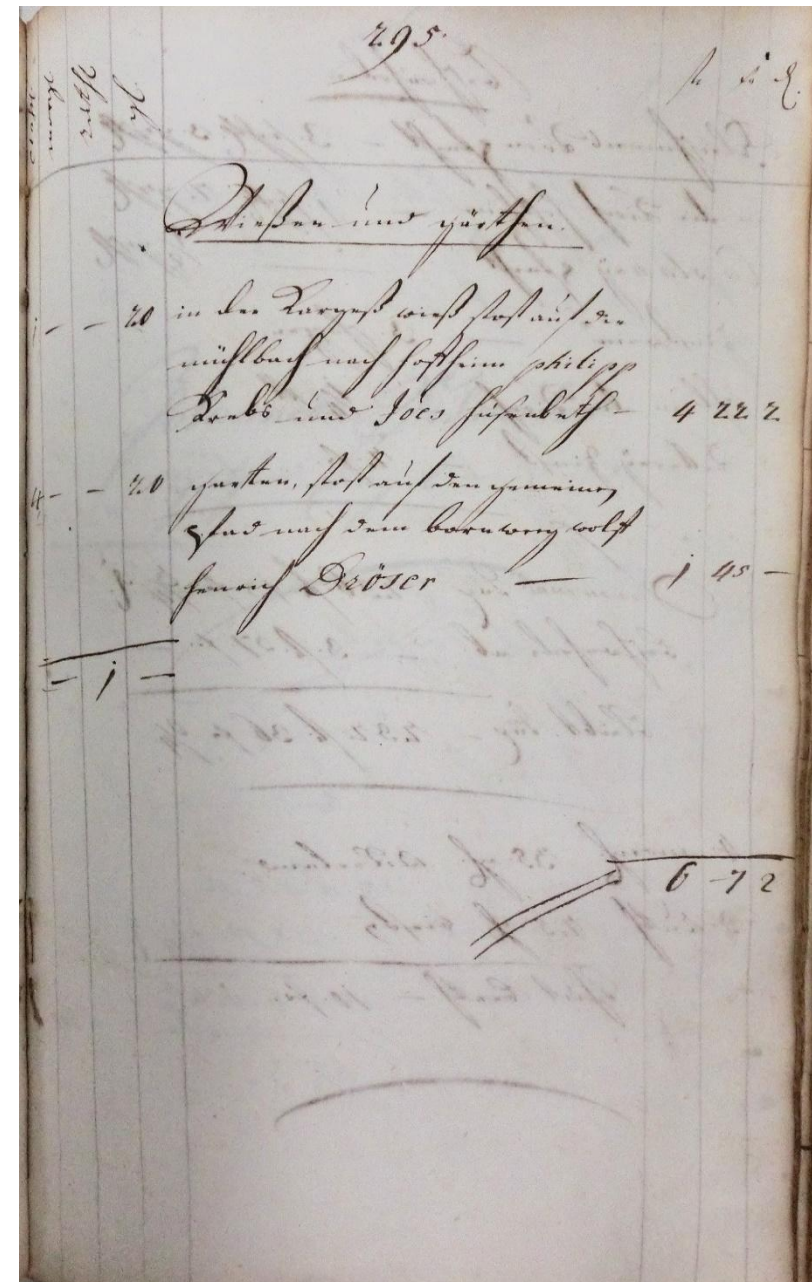 295
fl x ₰
Wießen und gärthen
20 in der wieß stost auf die
mühlbach nach hoffheim philipp
Krebs und Joes husenbeth – 4 22 2
20 garten, stost auf den gemeinen
pfad nach dem bornweeg wolff
henrich Dröser — 1 45 –
– 1 –
6 7 2